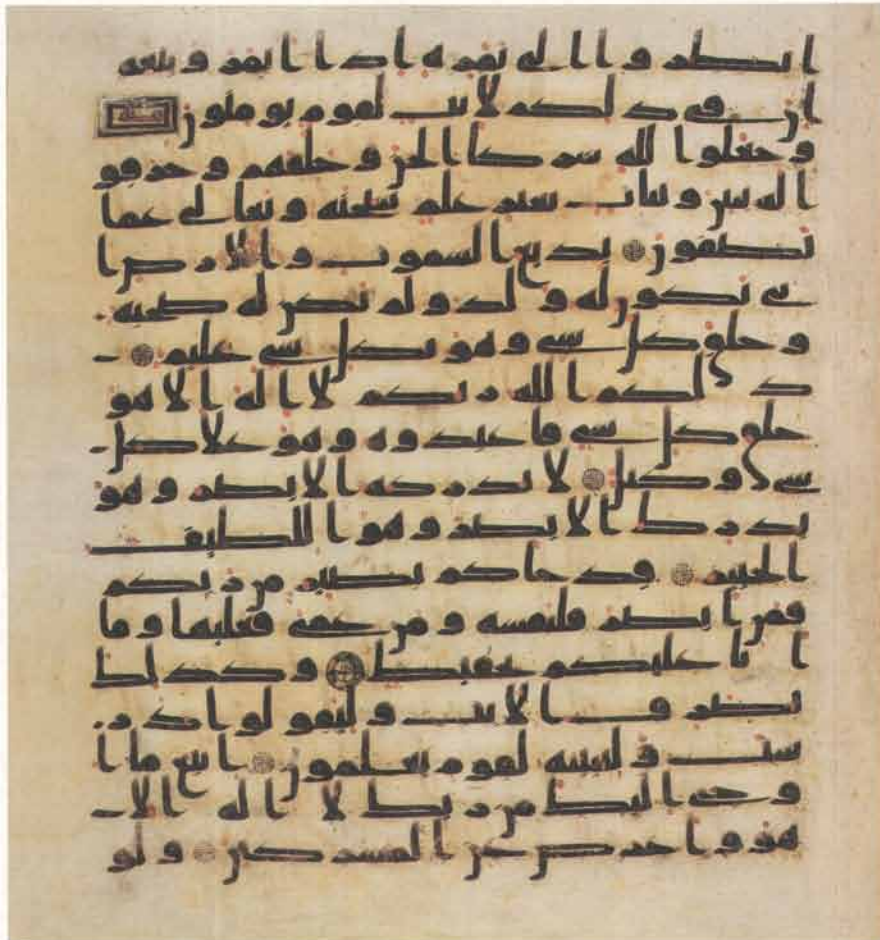 انظروا الى ثمره اذا اثمر وينعه
ان في ذلكم لايت لقوم يومنون
وجعلوا لله شركا الجن وخلقهم وخرقو
ا له بنين وبنت بغير علم سبحنه وتعالى عما
يصفون بديع السموت والارض ا
نى يكون له ولد ولم تكن له صحبة
وخلق كل شي وهو بكل شي عليم
ذلكم الله ربكم لا اله الا هو
خلق كل شي فاعبدوه وهو على كل
شي وكيل لا تدركه الابصر وهو
يدرك الابصر وهو اللطيف
الخبير قد جاكم بصير من ربكم
فمن ابصر فلنفسه ومن عمي فعليها وما
انا عليكم بحفيظ وكذلك
نصرف الايت وليقولوا در
ست ولنبينه لقوم يعلمون اتبع ما ا
وحي اليك من ربك لا اله الا
هو واعرض عن المشركين ولو